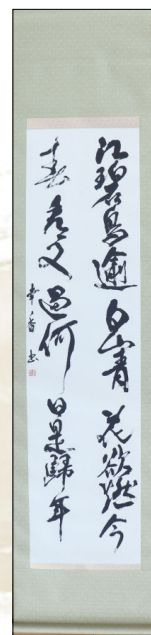 江碧鳥逾白山青花欲燃今
春看又過何日是歸年